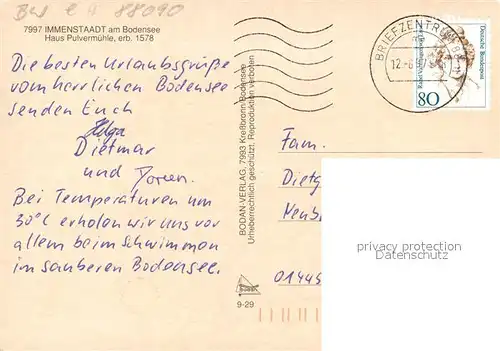 88090
7997 IMMENSTAADT am Bodensee
Haus Pulvermühle, erb. 1578
Die besten Urlaubsgrüße
vom herrlichen Bodensee
senden Euch
Helga
Dietmar
und Doreen.
Bei Temperaturen um
30°C erholen wir uns vor
allem beim schwimmen
im sauberen Bodensee.
BODAN-VERLAG, 7993 Kreßbronn/Bodensee
Urheberrechtlich geschützt. Reproduktion verboten
9-29
BRIEFZENTRUM 88
Deutsche Bundespost
80
Fam.
Dietg
Neub
01445
privacy protection
Datenschutz